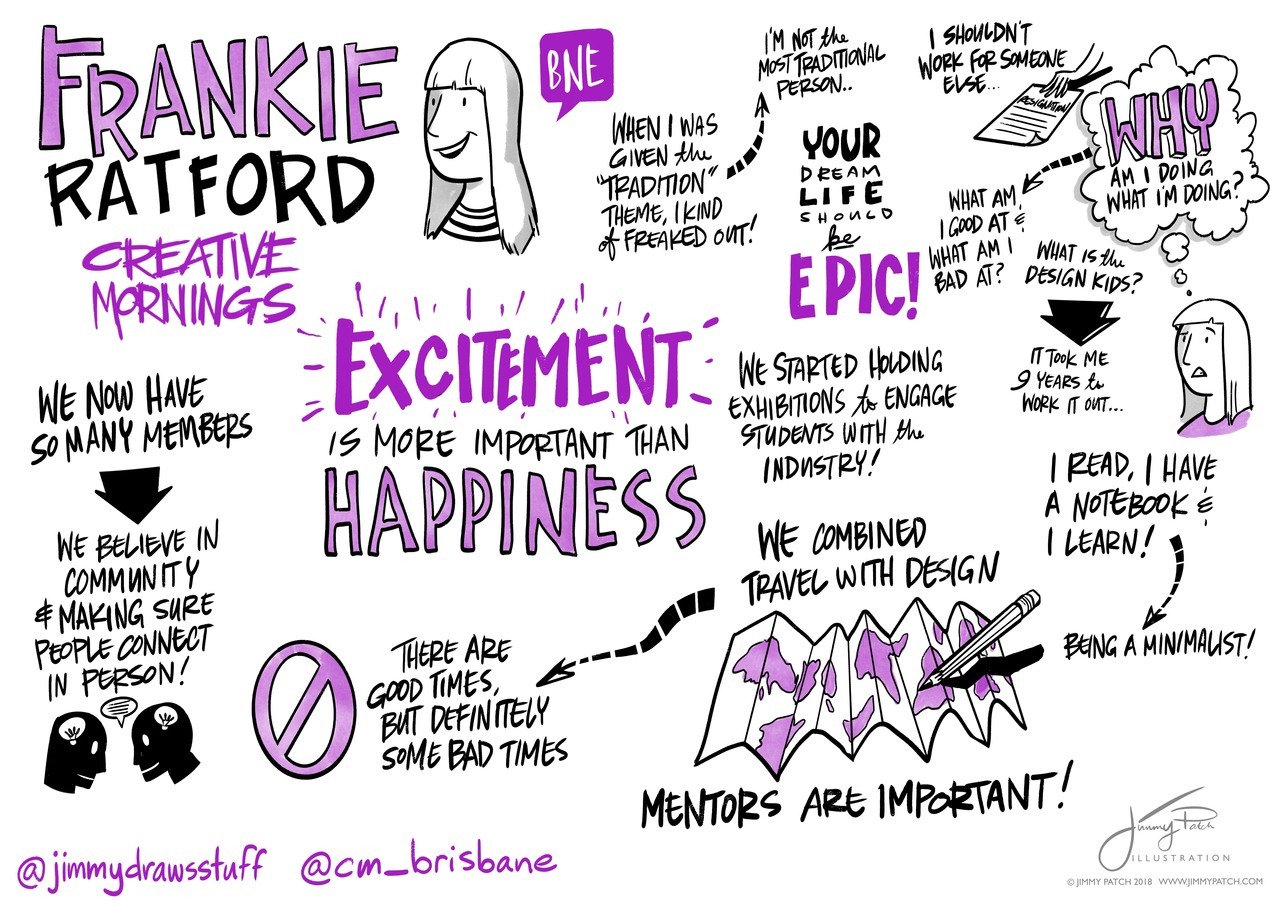 FRANKIE
RATFORD
CREATIVE
MORNINGS
BNE
WHEN I WAS
GIVEN the
"TRADITION"
THEME, I KIND
of FREAKED OUT!
I'M NOT the
MOST TRADITIONAL
PERSON..
YOUR
DREAM
LIFE
SHOULD
be
EPIC!
I SHOULDN'T
WORK FOR SOMEONE
ELSE...
RESIGNATION
WHY
AM I DOING
WHAT I'M DOING?
WHAT AM
I GOOD AT &
WHAT AM I
BAD AT?
WHAT IS the
DESIGN KIDS?
IT TOOK ME
9 YEARS to
WORK IT OUT...
EXCITEMENT
IS MORE IMPORTANT THAN
HAPPINESS
WE STARTED HOLDING
EXHIBITIONS to ENGAGE
STUDENTS WITH the
INDUSTRY!
WE NOW HAVE
SO MANY MEMBERS
WE BELIEVE IN
COMMUNITY
& MAKING SURE
PEOPLE CONNECT
IN PERSON!
I READ, I HAVE
A NOTEBOOK &
I LEARN!
BEING A MINIMALIST!
WE COMBINED
TRAVEL WITH DESIGN
THERE ARE
GOOD TIMES,
BUT DEFINITELY
SOME BAD TIMES
MENTORS ARE IMPORTANT!
@jimmydrawsstuff @cm_brisbane
Jimmy Patch
ILLUSTRATION
© JIMMY PATCH 2018 WWW.JIMMYPATCH.COM